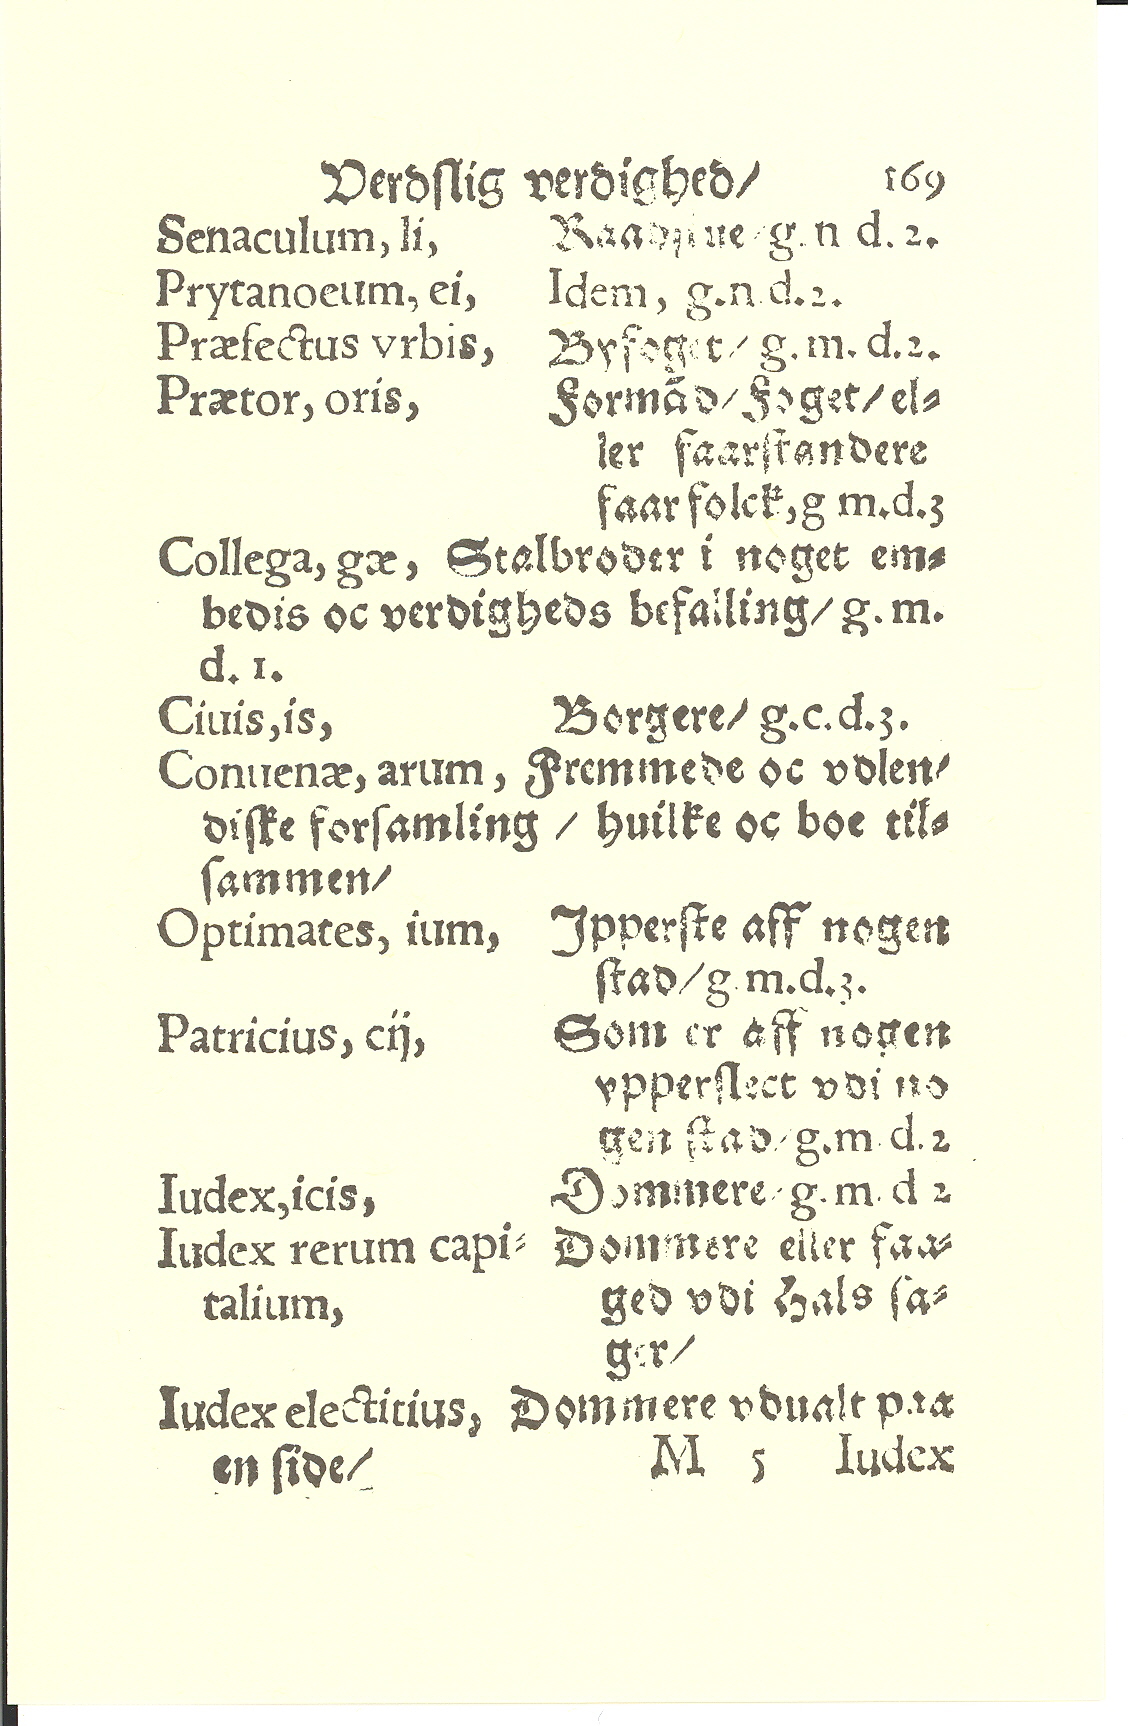 Verdslig verdighed/ 169
Senaculum, li, Raadstue/g.n d.2.
Prytanoeum, ei, Idem, g.n.d.2.
Præfectus vrbis, Byfoget/ g.m.d.2.
Prætor, oris, Formãd/Foget/el⸗
ler faarstandere
faar folck,g m.d.3
Collega, gæ, Stalbroder i noget em⸗
bedis oc verdigheds befalling/ g.m.
d. 1.
Ciuis,is, Borgere/ g.c.d.3.
Conuenæ, arum, Fremmede oc vdlen/
diſke forſamling / huilke oc boe til⸗
ſammen/
Optimates, ium, Ipperſte aff nogen
ſtad/g.m.d.3.
Patricius, cij, Som er aff nogen
vpperſlect vdi no
gen ſtad/g.m.d.2
Iudex,icis, Dommere/g.m.d 2
Iudex rerum capi⸗ Dommere eller faa⸗
talium, ged vdi Hals ſa⸗
ger/
Iudex electitius, Dommere vdualt paa
en ſide/ M 5 Iudex